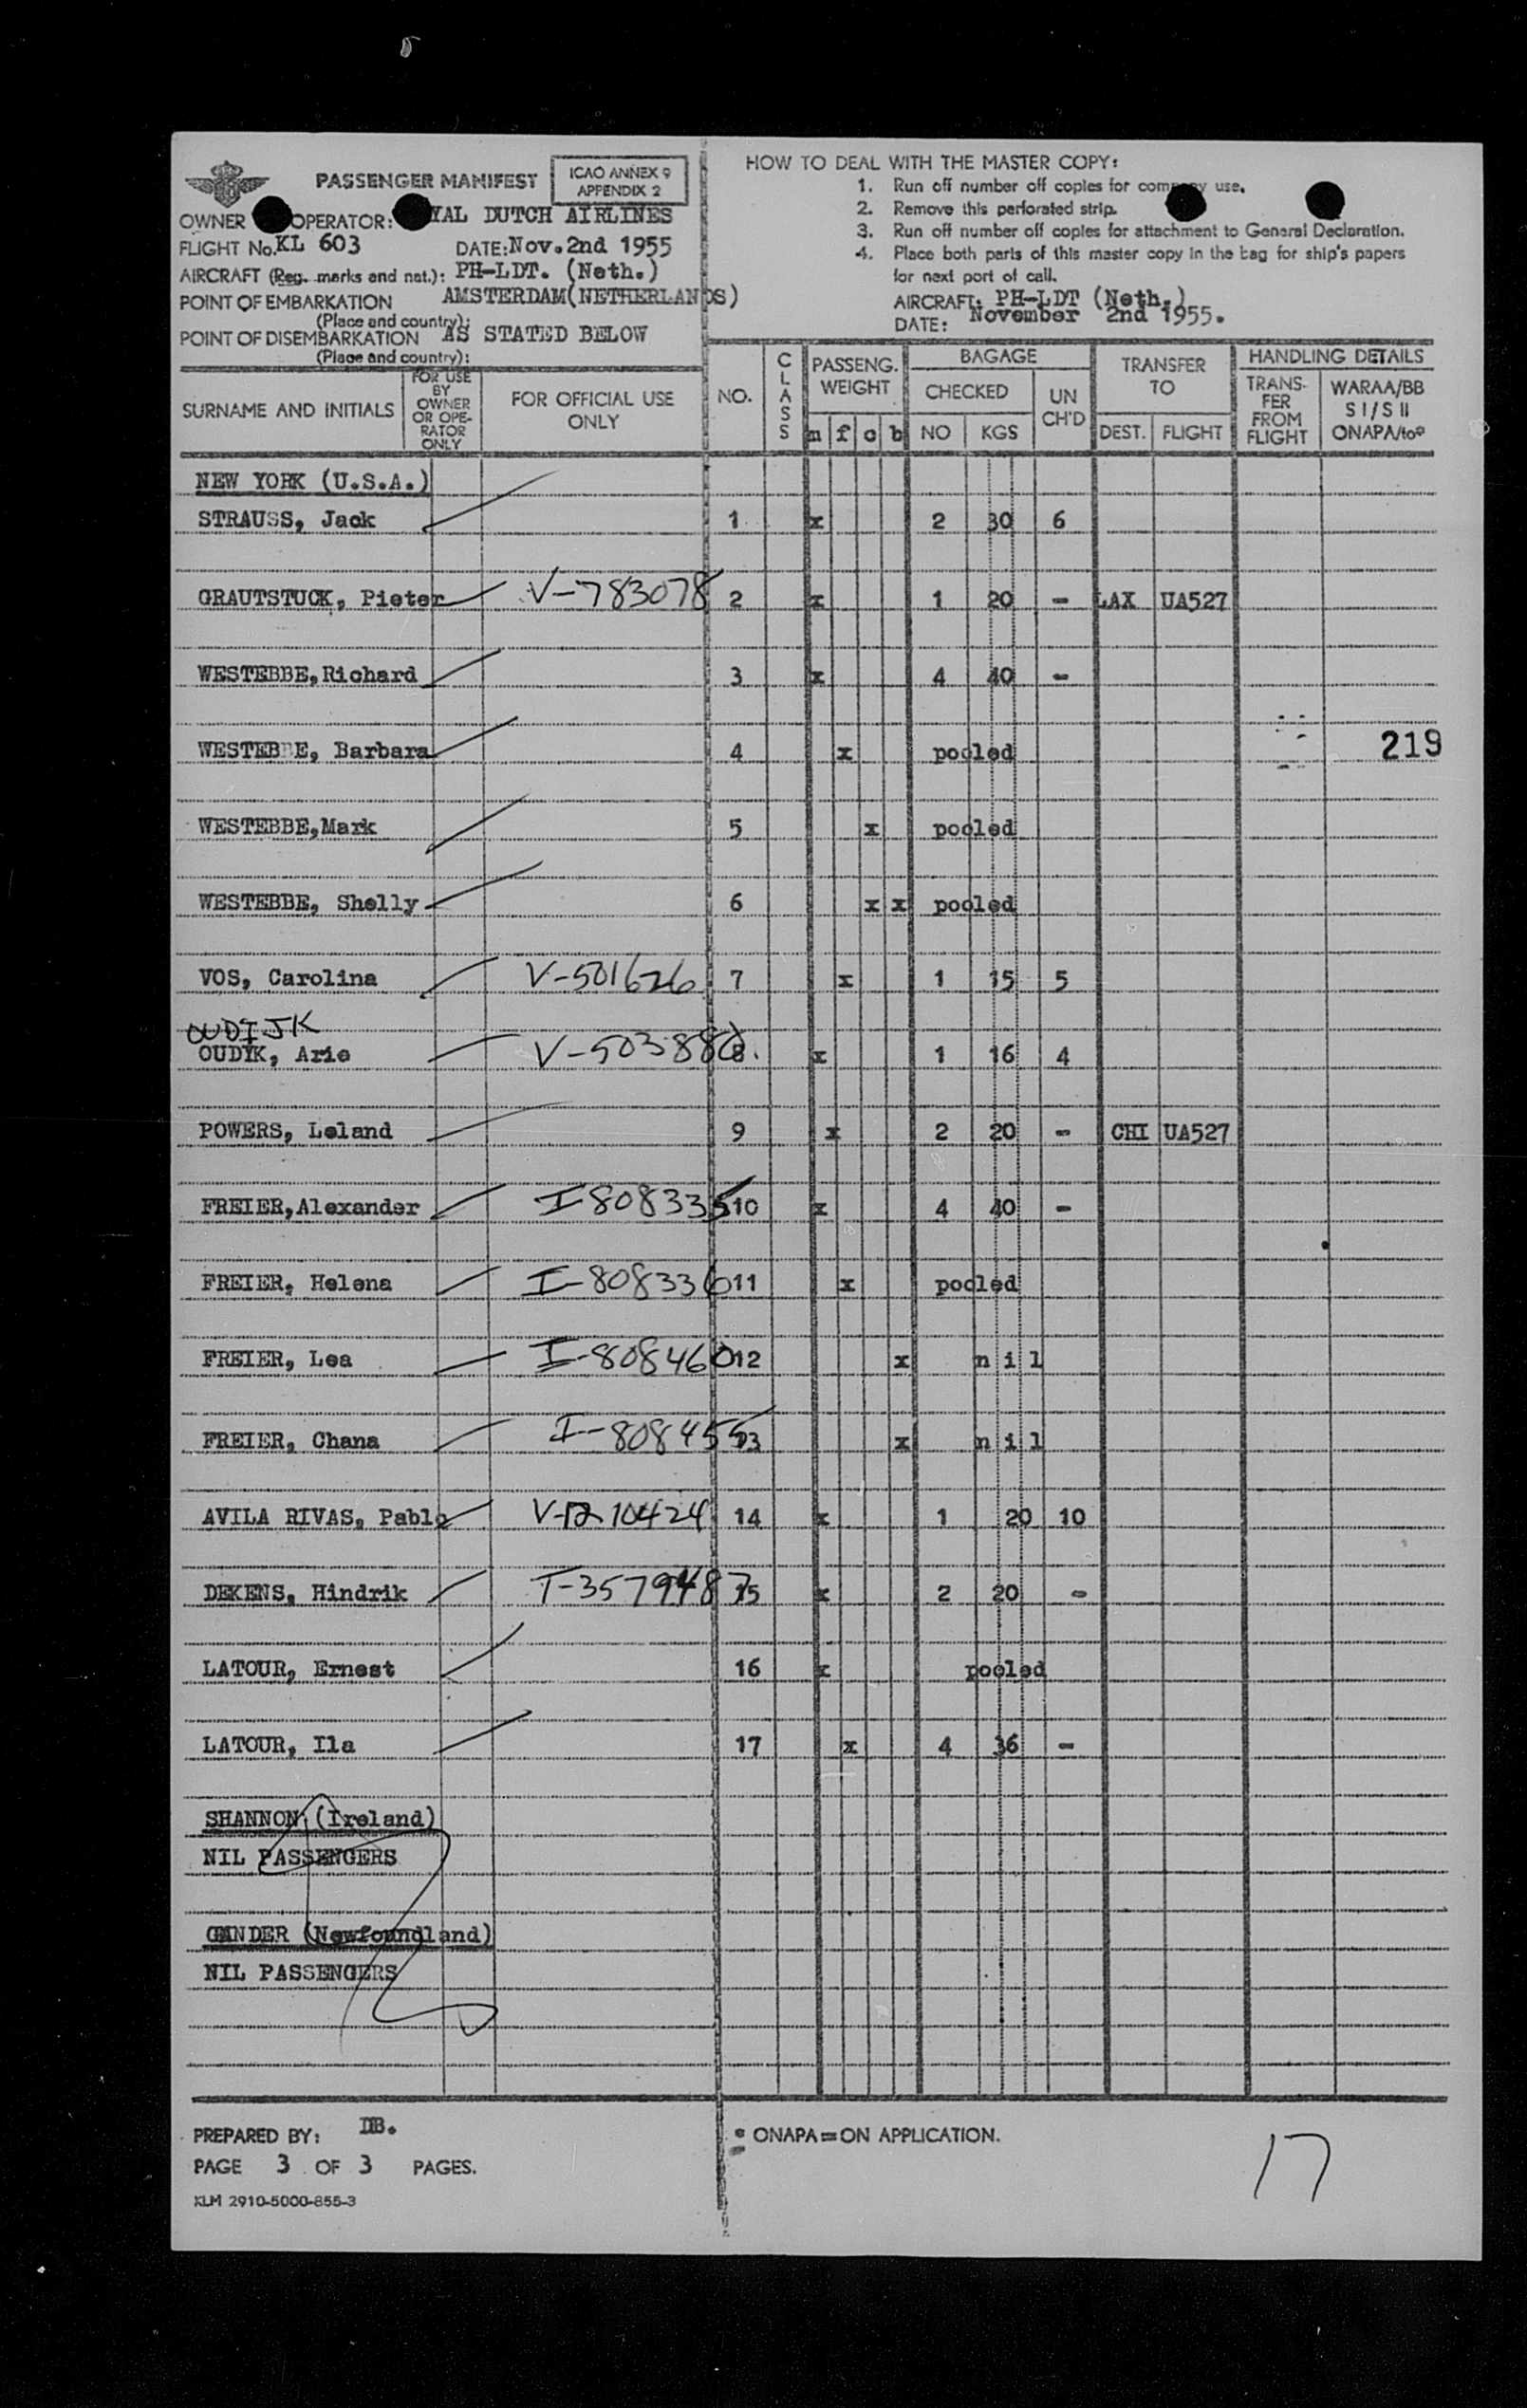 PASSENGER MANIFEST
ICAO ANNEX 9
APPENDIX 2
OWNER OPERATOR: YAL DUTCH AIRLINES
FLIGHT No. KL 603 DATE: Nov. 2nd 1955
AIRCRAFT (Reg. marks and nat.): PH-LDT. (Neth.)
POINT OF EMBARKATION AMSTERDAM(NETHERLANDS)
(Place and country):
POINT OF DISEMBARKATION AS STATED BELOW
(Place and country):
HOW TO DEAL WITH THE MASTER COPY:
1. Run off number off copies for company use.
2. Remove this perforated strip.
3. Run off number off copies for attachment to General Declaration.
4. Place both parts of this master copy in the bag for ship's papers
for next port of call.
AIRCRAFT: PH-LDT (Neth.)
DATE: November 2nd 1955.
SURNAME AND INITIALS
FOR USE
BY
OWNER
OR OPE-
RATOR
ONLY
FOR OFFICIAL USE
ONLY
NO.
CLASS
PASSENG.
WEIGHT
m f c b
BAGAGE
CHECKED
NO KGS
UN
CH'D
TRANSFER
TO
DEST. FLIGHT
HANDLING DETAILS
TRANS-
FER
FROM
FLIGHT
WARAA/BB
S I / S II
ONAPA/to*
NEW YORK (U.S.A.)
STRAUSS, Jack 1 x 2 30 6
GRAUTSTUCK, Pieter V-783078 2 x 1 20 - LAX UA527
WESTEBBE, Richard 3 x 4 40 -
WESTEBBE, Barbara 4 x pooled
219
WESTEBBE, Mark 5 x pooled
WESTEBBE, Shelly 6 x x pooled
VOS, Carolina V-501626 7 x 1 15 5
OUDIJK
OUDYK, Arie V-503880 8. x 1 16 4
POWERS, Leland 9 x 2 20 - CHI UA527
FREIER, Alexander I-808335 10 x 4 40 -
FREIER, Helena I-808336 11 x pooled
FREIER, Lea I-808460 12 x nil
FREIER, Chana I-808455 13 x nil
AVILA RIVAS, Pablo 14 x 1 20 10
DEKENS, Hindrik T-3579487 15 x 2 20 -
LATOUR, Ernest 16 x pooled
LATOUR, Ila 17 x 4 36 -
SHANNON (Ireland)
NIL PASSENGERS
GANDER (Newfoundland)
NIL PASSENGERS
PREPARED BY: DB.
PAGE 3 OF 3 PAGES.
KLM 2910-5000-855-3
* ONAPA = ON APPLICATION.
17